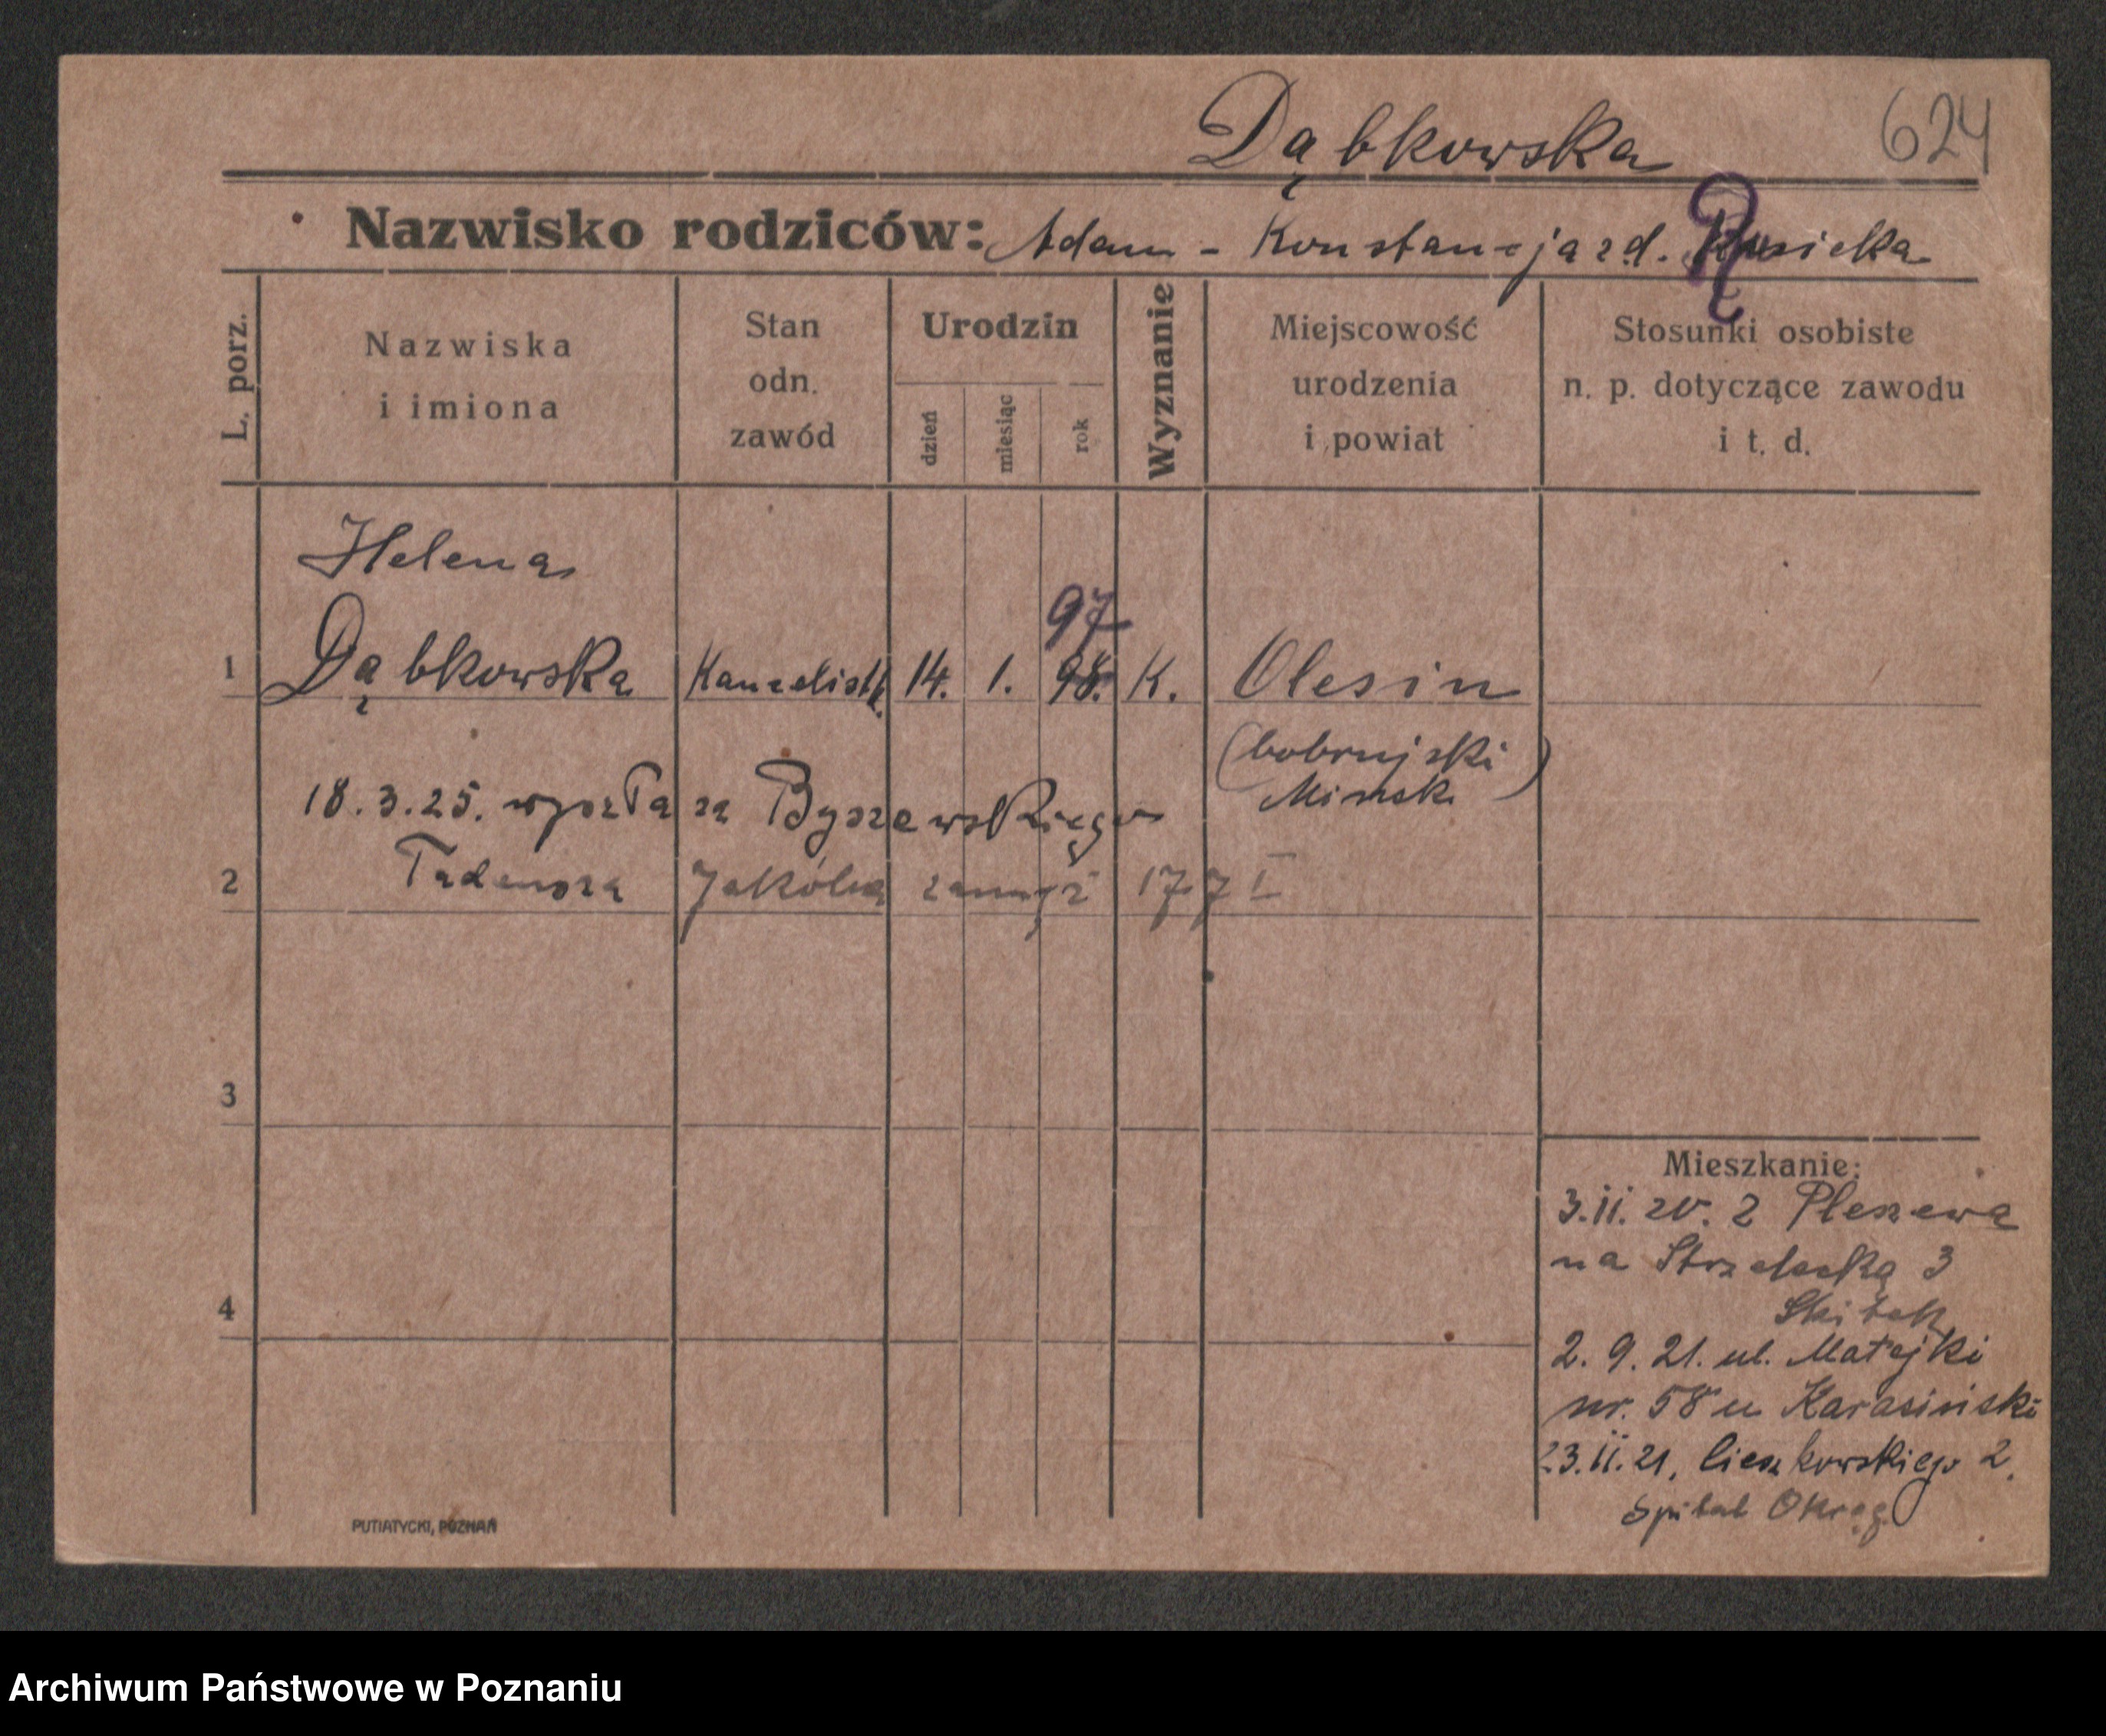 Dąbkowska 624
Nazwisko rodziców: Adam - Konstancja zd.
L. porz.
Nazwiska
i imiona
Stan
odn.
zawód
Urodzin
dzień
miesiąc
rok
Wyznanie
Miejscowość
urodzenia
i powiat
Stosunki osobiste
n. p. dotyczące zawodu
i t. d.
Helena
97
1 Dąbkowska Kancelistk. 14. 1. 98. K. Olesin
(bobrujski
Minsk)
18.3.25. wyszła za Byszewskiego
2 Tadeusza Jakóba zamąż 177 I
3
4
Mieszkanie:
3.11.20. z Pleszewa
na Strzelecką 3
2. 9. 21. ul. Matejki
nr. 58 u Karasiński
23.11.21. Cieszkowskiego 2.
Szpital Okręg
PUTIATYCKI, POZNAŃ
Archiwum Państwowe w Poznaniu